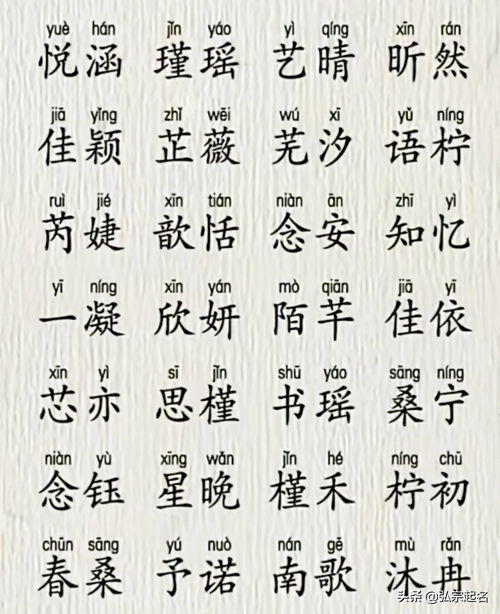 yuè hán jǐn yáo yì qíng xīn rán
悦涵 瑾瑶 艺晴 昕然
jiā yǐng zhǐ wēi wú xī yǔ níng
佳颖 芷薇 芜汐 语柠
ruì jié xīn tián niàn ān zhī yì
芮婕 歆恬 念安 知忆
yī níng xīn yán mò qiān jiā yī
一凝 欣妍 陌芊 佳依
xīn yì sī jǐn shū yáo sāng níng
芯亦 思槿 书瑶 桑宁
niàn yù xīng wǎn jǐn hé níng chū
念钰 星晚 槿禾 柠初
chūn sāng yú nuò nán gē mù rǎn
春桑 予诺 南歌 沐冉
头条 @弘宗起名